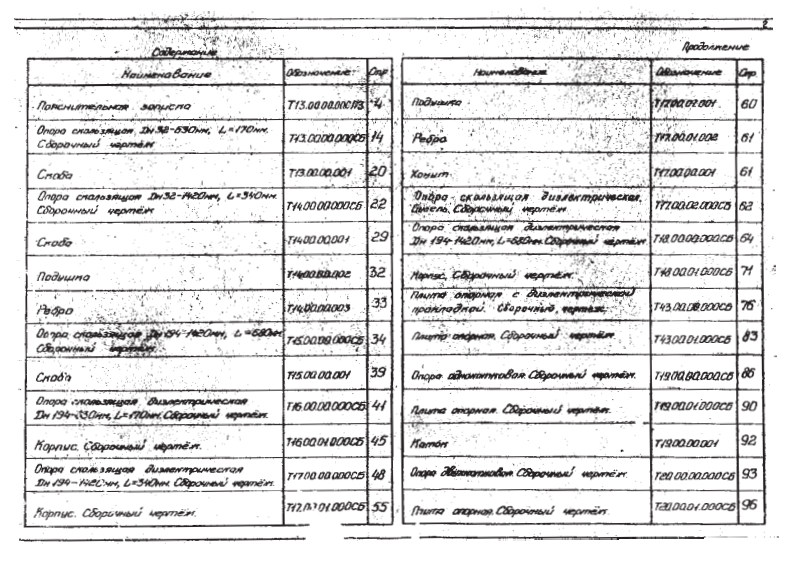 2
Содержание
Наименование Обозначение Стр
Пояснительная записка Т13.00.00.000ПЗ 4
Опора скользящая Дн 32-530мм, L=170мм.
Сборочный чертёж Т13.00.00.000СБ 14
Скоба Т13.00.00.001 20
Опора скользящая Дн 32-1420мм, L=340мм.
Сборочный чертёж Т14.00.00.000СБ 22
Скоба Т14.00.00.001 29
Подушка Т14.00.00.002 32
Ребро Т14.00.00.003 33
Опора скользящая Дн 194-1420мм, L=680мм
Сборочный чертёж. Т15.00.00.000СБ 34
Скоба Т15.00.00.001 39
Опора скользящая диэлектрическая
Дн 194-530мм, L=170мм. Сборочный чертёж. Т16.00.00.000СБ 41
Корпус. Сборочный чертёж. Т16.00.01.000СБ 45
Опора скользящая диэлектрическая
Дн 194-1420мм, L=340мм. Сборочный чертёж. Т17.00.00.000СБ 48
Корпус. Сборочный чертёж. Т17.00.01.000СБ 55
Продолжение
Наименование Обозначение Стр.
Подушка Т17.00.02.001 60
Ребро Т17.00.01.002 61
Хомут Т17.00.00.001 61
Опора скользящая диэлектрическая.
Сборочный чертёж Т17.00.02.000СБ 62
Опора скользящая диэлектрическая
Дн 194-1420мм, L=680мм. Сборочный чертёж Т18.00.00.000СБ 64
Корпус. Сборочный чертёж. Т18.00.01.000СБ 71
Плита опорная с диэлектрической
прокладкой. Сборочный чертеж. Т43.00.00.000СБ 76
Плита опорная. Сборочный чертёж. Т43.00.01.000СБ 83
Опора однокатковая. Сборочный чертёж. Т19.00.00.000СБ 86
Плита опорная. Сборочный чертёж. Т19.00.01.000СБ 90
Каток Т19.00.00.001 92
Опора двухкатковая. Сборочный чертёж. Т20.00.00.000СБ 93
Плита опорная. Сборочный чертёж. Т20.00.01.000СБ 96